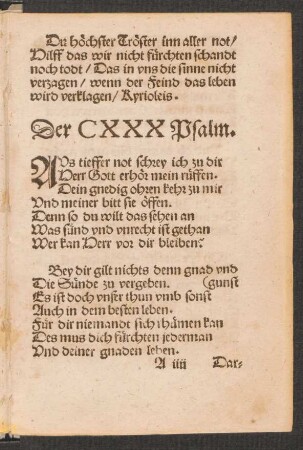 Du höchster Tröster inn aller not/
Hilff das wir nicht fürchten schandt
noch todt/ Das in vns die sinne nicht
verzagen/ wenn der Feind das leben
wird verklagen/ Kyrioleis.
Der CXXX Psalm.
AVs tieffer not schrey ich zu dir
Herr Gott erhör mein rüffen.
Dein gnedig ohren kehr zu mir
Vnd meiner bitt sie öffen.
Denn so du wilt das sehen an
Was sünd vnd vnrecht ist gethan
Wer kan Herr vor dir bleiben?
Bey dir gilt nichts denn gnad vnd
Die Sünde zu vergeben. (gunst
Es ist doch vnser thun vmb sonst
Auch in dem besten leben.
Für dir niemandt sich rhümen kan
Des mus dich fürchten jederman
Vnd deiner gnaden leben.
A iiij Dar-